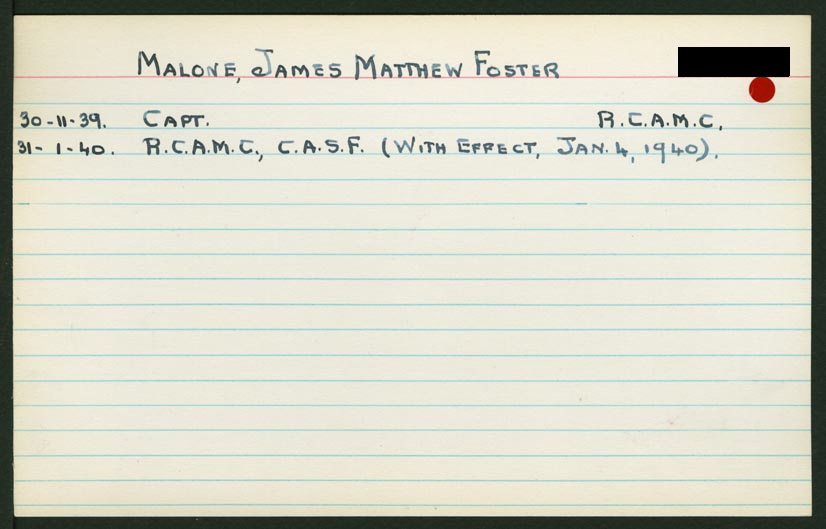 MALONE, JAMES MATTHEW FOSTER
30-11-39. CAPT. R.C.A.M.C,
31-1-40. R.C.A.M.C., C.A.S.F. (WITH EFFECT, JAN. 4, 1940).